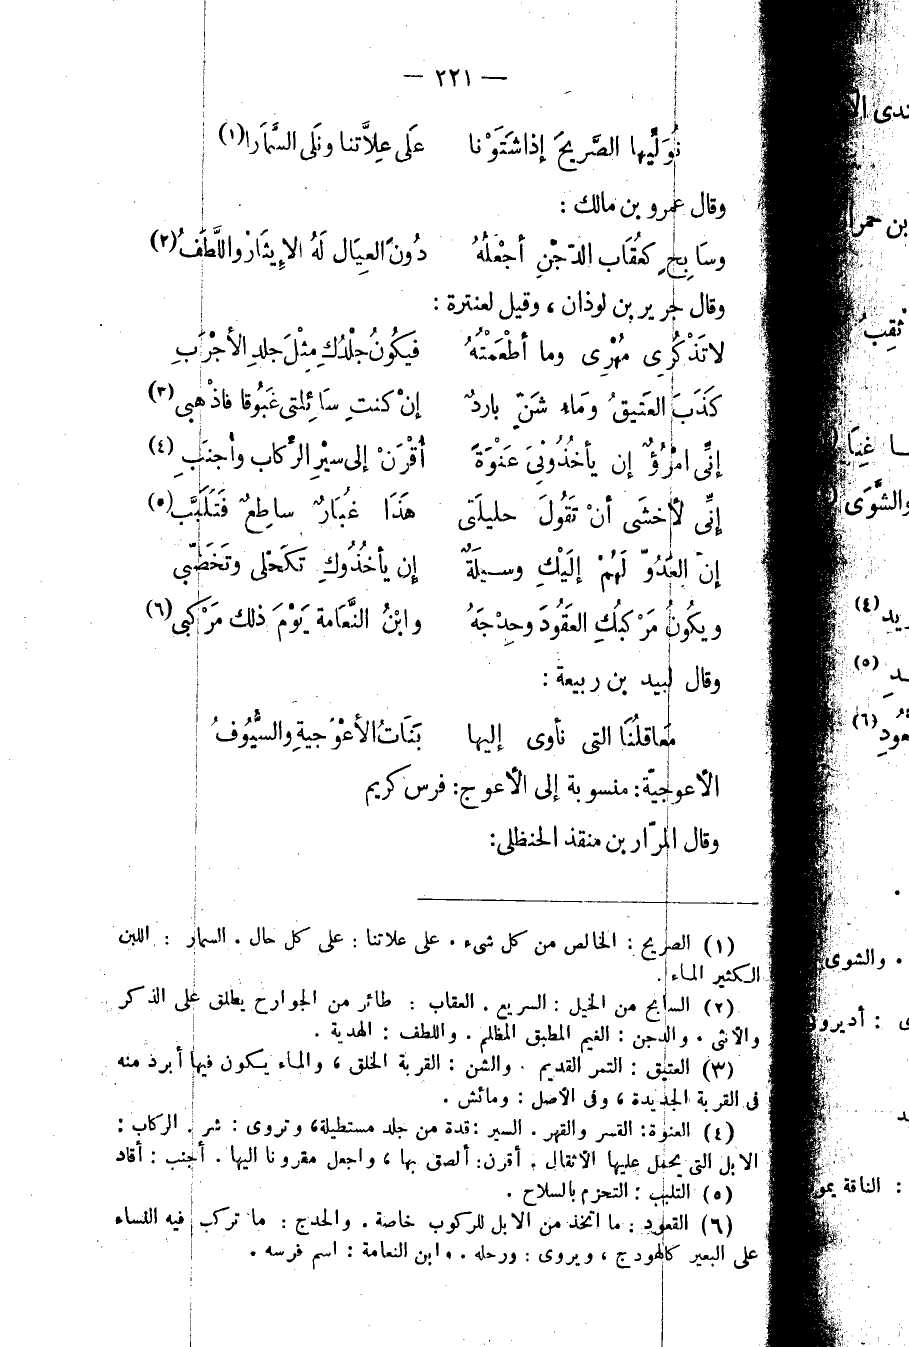 — ٢٢١ —
نُوَلِّيها الصَّرِيحَ إذا شَتَوْنا عَلَى عِلاَّتنا ونَلَى السَّمَارا (١)
وقال عمرو بن مالك :
وسَابِحٍ كعُقَاب الدّجْنِ أجْعَلُهُ دُونَ العِيَال لَهُ الإيثَارُ واللَّطَفُ (٢)
وقال جرير بن لوذان ، وقيل لعنترة :
لا تَذْكُرِى مُهْرِى وما أطْعَمْتُهُ فيَكُونُ جلْدُكِ مِثْلَ جَلدِ الأجْرَبِ
كَذَبَ العَتيقُ ومَاء شَنّ باردٌ إنْ كنتِ سَائِلتى غَبُوقا فاذْهبى (٣)
إنِّى امْرُؤٌ إن يأخذُونِىَ عَنْوَةً أقْرَنْ إلى سيْرِ الرِّكاب وأجنَبِ (٤)
إنِّى لأخشَى أنْ تَقُولَ حليلَتى هَذَا غُبَارٌ ساطِعٌ فَتَلَبَّبِ (٥)
إن العَدُوّ لَهُمْ إلَيْكِ وسيلَةٌ إن يأخُذُوكِ تكَحّلى وتَخَضّبى
ويكُونُ مَرْكبُكِ القَعُودَ وحِدْجَهُ وابْنُ النَّعَامة يَوْمَ ذلك مَرْكبى (٦)
وقال لبيد بن ربيعة :
مَعاقلُنَا التى نأوى إليها بَنَاتُ الأعْوَجيةِ والسُّيُوفُ
الأعوجيّة : منسوبة إلى الأعوج : فرس كريم
وقال المرّار بن منقذ الحنظلى :
(١) الصريح : الخالص من كل شىء . على علاتنا : على كل حال . السمار : اللبن
الكثير الماء .
(٢) السابح من الخيل : السريع . العقاب : طائر من الجوارح يطلق على الذكر
والأنثى . والدجن : الغيم المطبق المظلم . واللطف : الهدية .
(٣) العتيق : التمر القديم . والشن : القربة الخلق ، والماء يكون فيها أبرد منه
فى القربة الجديدة ، وفى الأصل : ومائش .
(٤) العنوة : القسر والقهر . السير : قدة من جلد مستطيلة ، وتروى : شر . الركاب :
الابل التى يحمل عليها الأثقال . أقرن : ألصق بها ، واجعل مقرونا اليها . أجنب : أقاد
(٥) التلبب : التحزم بالسلاح .
(٦) القعود : ما اتخذ من الابل للركوب خاصة . والحدج : ما تركب فيه النساء
على البعير كالهودج ، ويروى : ورحله . وابن النعامة : اسم فرسه .
ثقِبُ
والشَّوَى
(٤)
(٥)
(٦)
. والشوى
: الناقة